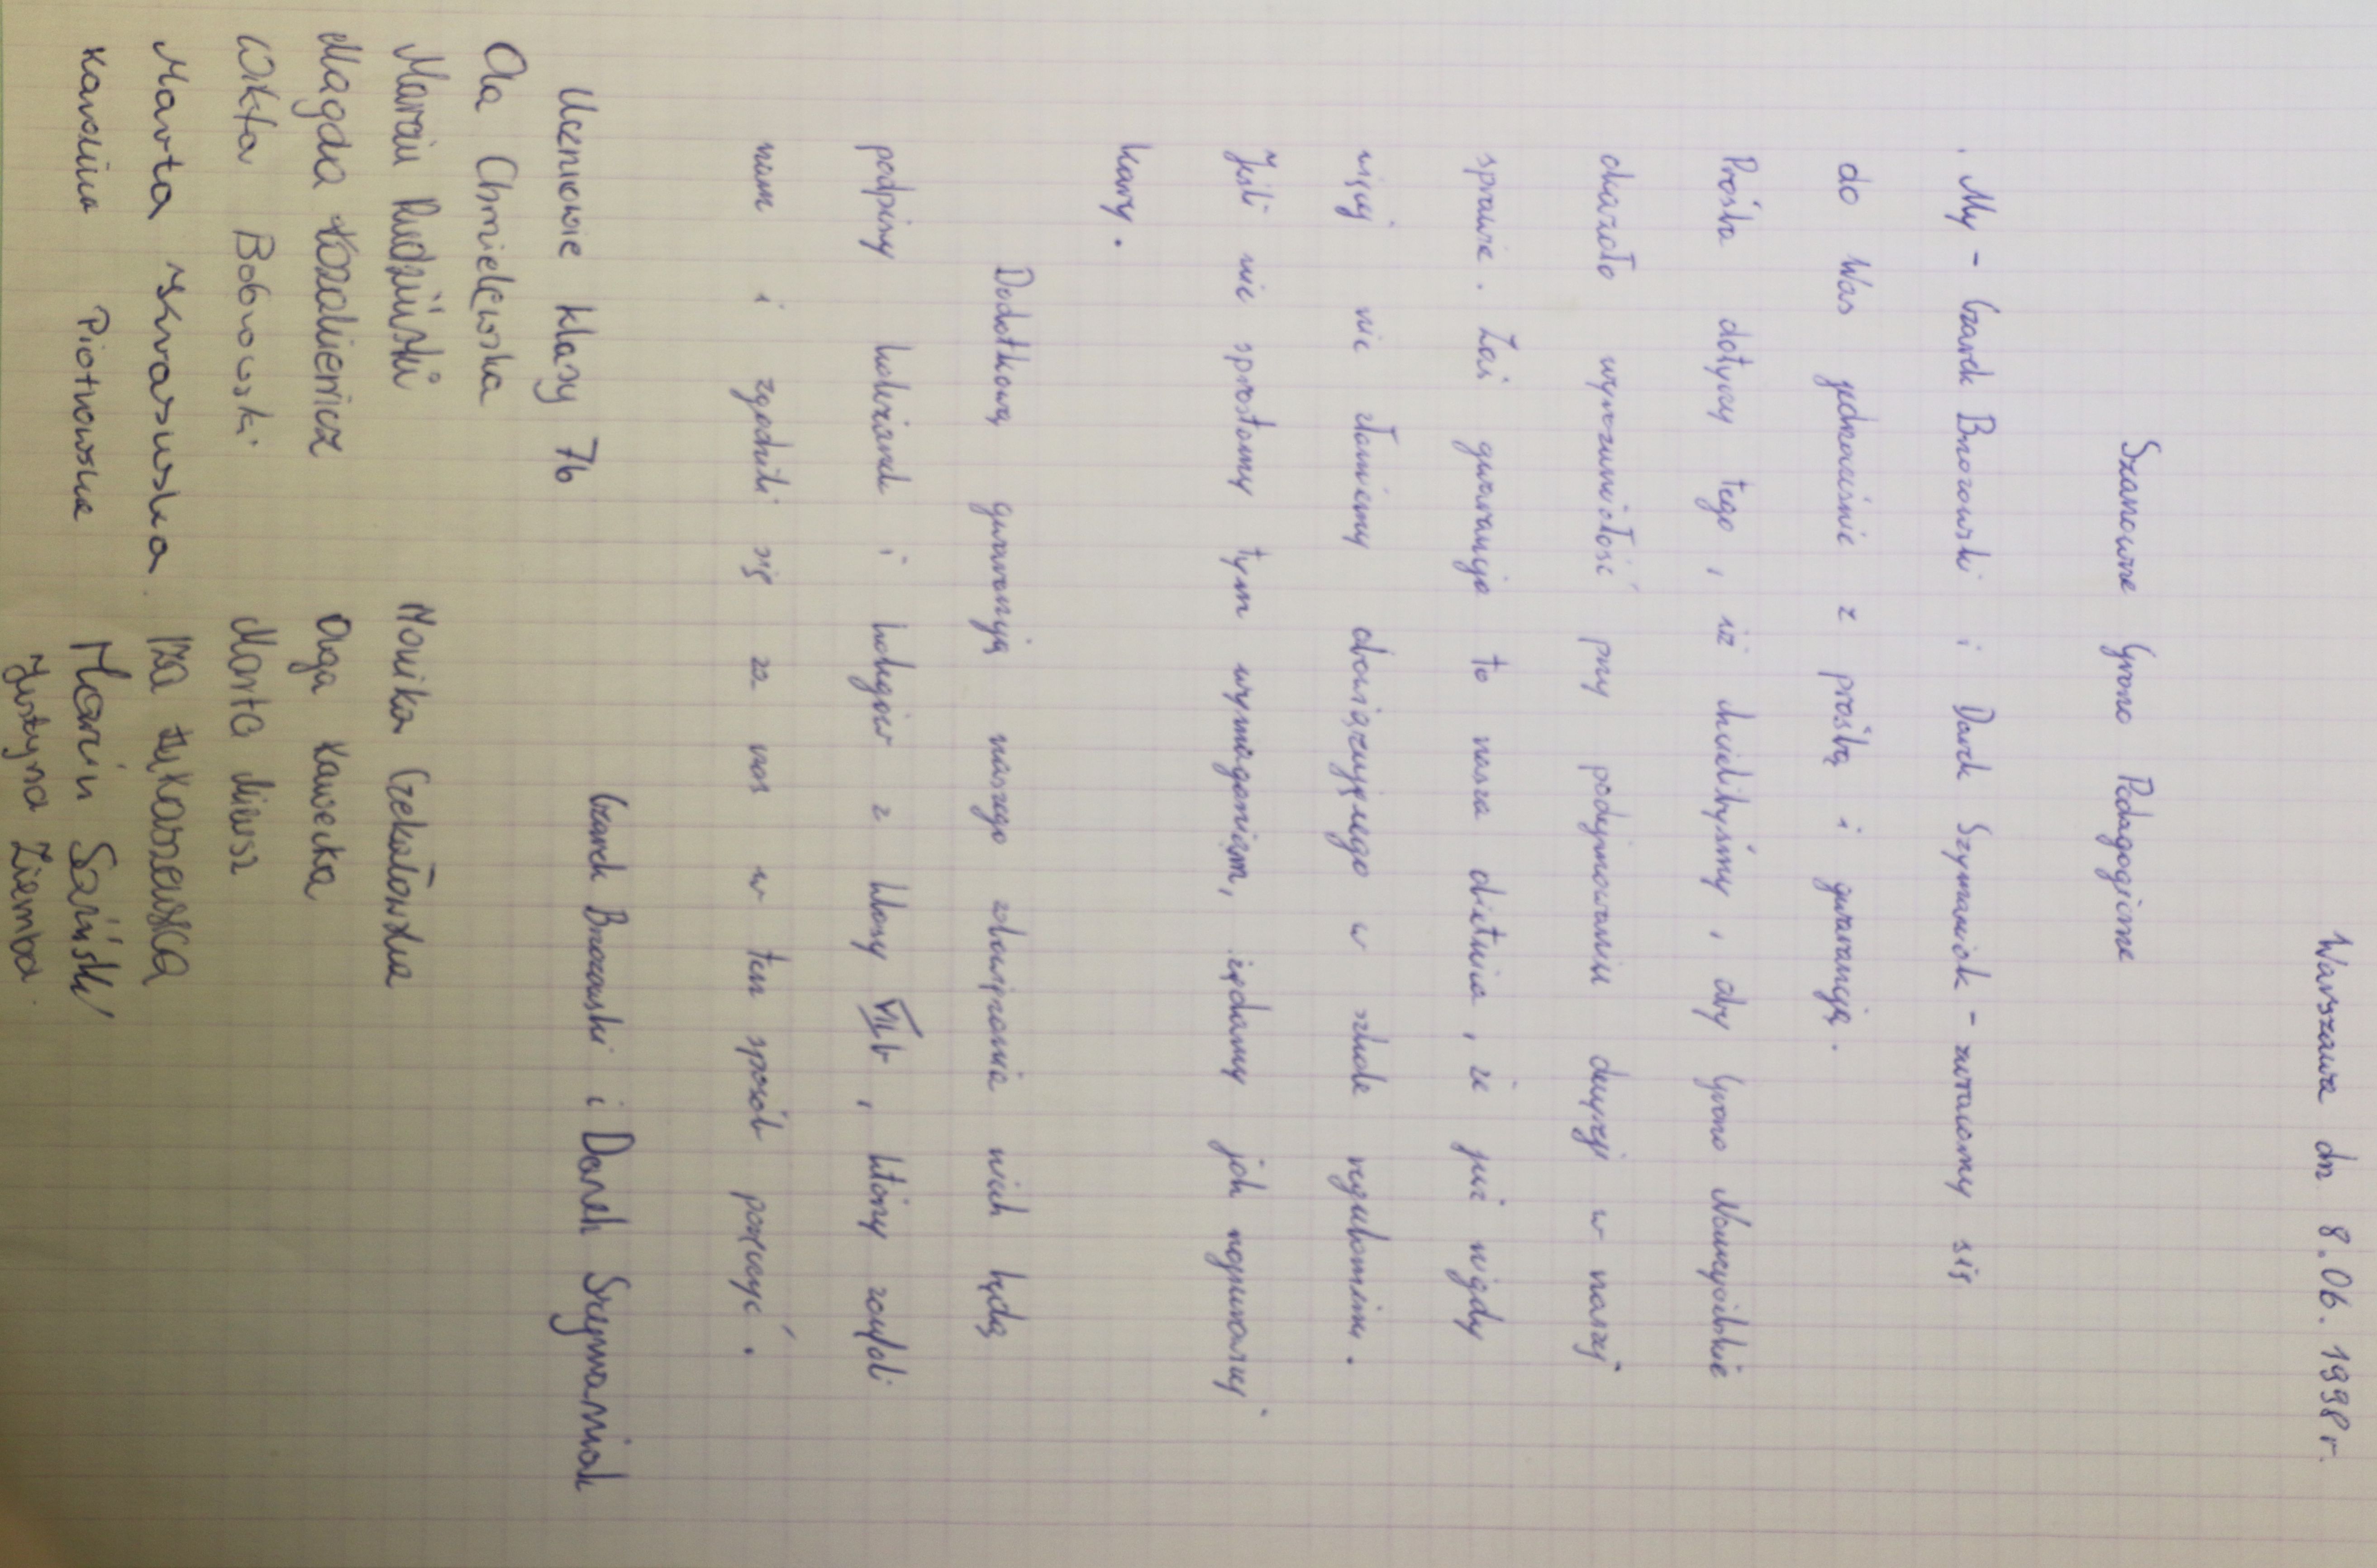 Warszawa dn 8.06.1998 r.
Szanowne Grono Pedagogiczne
My - Czarek Brzozowski i Darek Szymaniak - zwracamy się
do Was jednocześnie z prośbą i gwarancją.
Prośba dotyczy tego, iż chcielibyśmy, aby Grono Nauczycielskie
okazało wyrozumiałość przy podejmowaniu decyzji w naszej
sprawie. Zaś gwarancja to nasza obietnica, że już nigdy
więcej nie złamiemy obowiązującego w szkole regulaminu.
Jeśli nie sprostamy tym wymaganiom, żądamy jak najsurowszej
kary.
Dodatkową gwarancją naszego zobowiązania niech będą
podpisy koleżanek i kolegów z klasy VIIb, którzy zaufali
nam i zgodzili się za nas w ten sposób poręczyć.
Czarek Brzozowski i Darek Szymaniak
Uczniowie klasy 7b
Ola Chmielewska
Marcin Rudziński Monika Czekałowska
Magda Kozakiewicz Olga Kawecka
Wikta Bobrowski Marta Miusz
Marta Skraswska Iza Łukaszewska
Karolina Piotrowska Marcin Szański
Justyna Ziemba